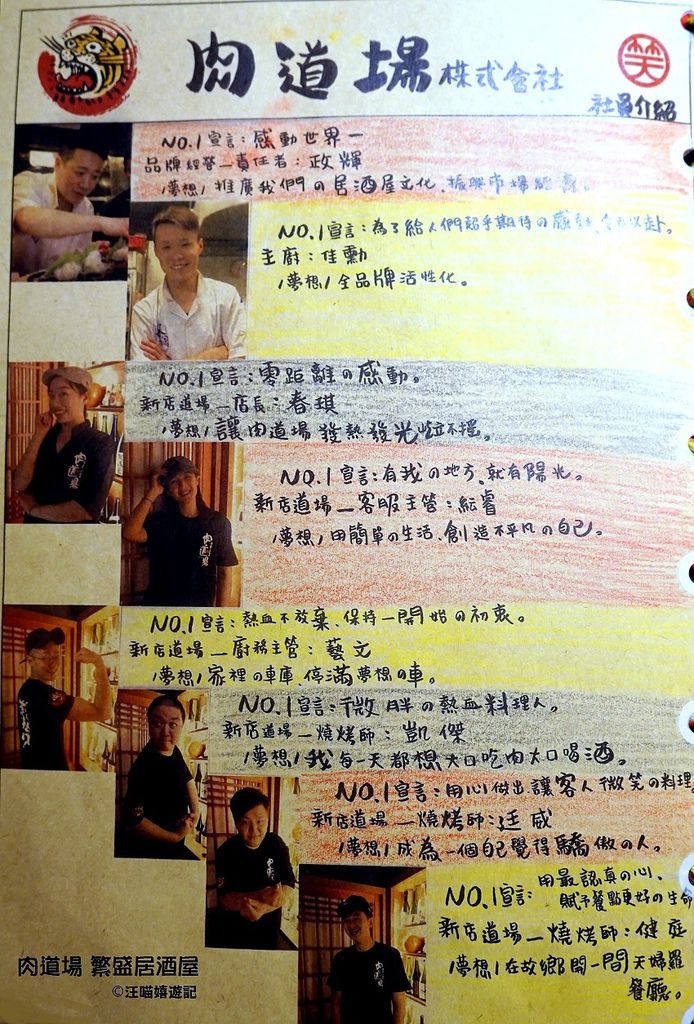 肉道場 株式會社
笑
社員介紹
NO.1宣言：感動世界一
品牌經營_責任者：政輝
/夢想/ 推廣我們の居酒屋文化、振興市場經濟。
NO.1宣言：為了給人們超乎期待の感動,全力以赴。
主廚：佳勳
/夢想/ 全品牌活性化。
NO.1宣言：零距離の感動。
新店道場_店長：春琪
/夢想/ 讓肉道場發熱發光屹立不搖。
NO.1宣言：有我の地方、就有陽光。
新店道場_客服主管：紜睿
/夢想/ 用簡單の生活、創造不平凡の自己。
NO.1宣言：熱血不放棄、保持一開始の初衷。
新店道場_廚務主管：藝文
/夢想/ 家裡の車庫 停滿夢想の車。
NO.1宣言：微胖の熱血料理人。
新店道場_燒烤師：凱傑
/夢想/ 我每一天都想大口吃肉大口喝酒。
NO.1宣言：用心做出讓客人微笑の料理
新店道場_燒烤師：廷威
/夢想/ 成為一個自己覺得驕傲の人。
NO.1宣言：用最認真の心、
賦予餐點更好の生命
新店道場_燒烤師：健庭
/夢想/ 在故鄉開一間天婦羅
餐廳。
肉道場 繁盛居酒屋
©汪喵嬉遊記